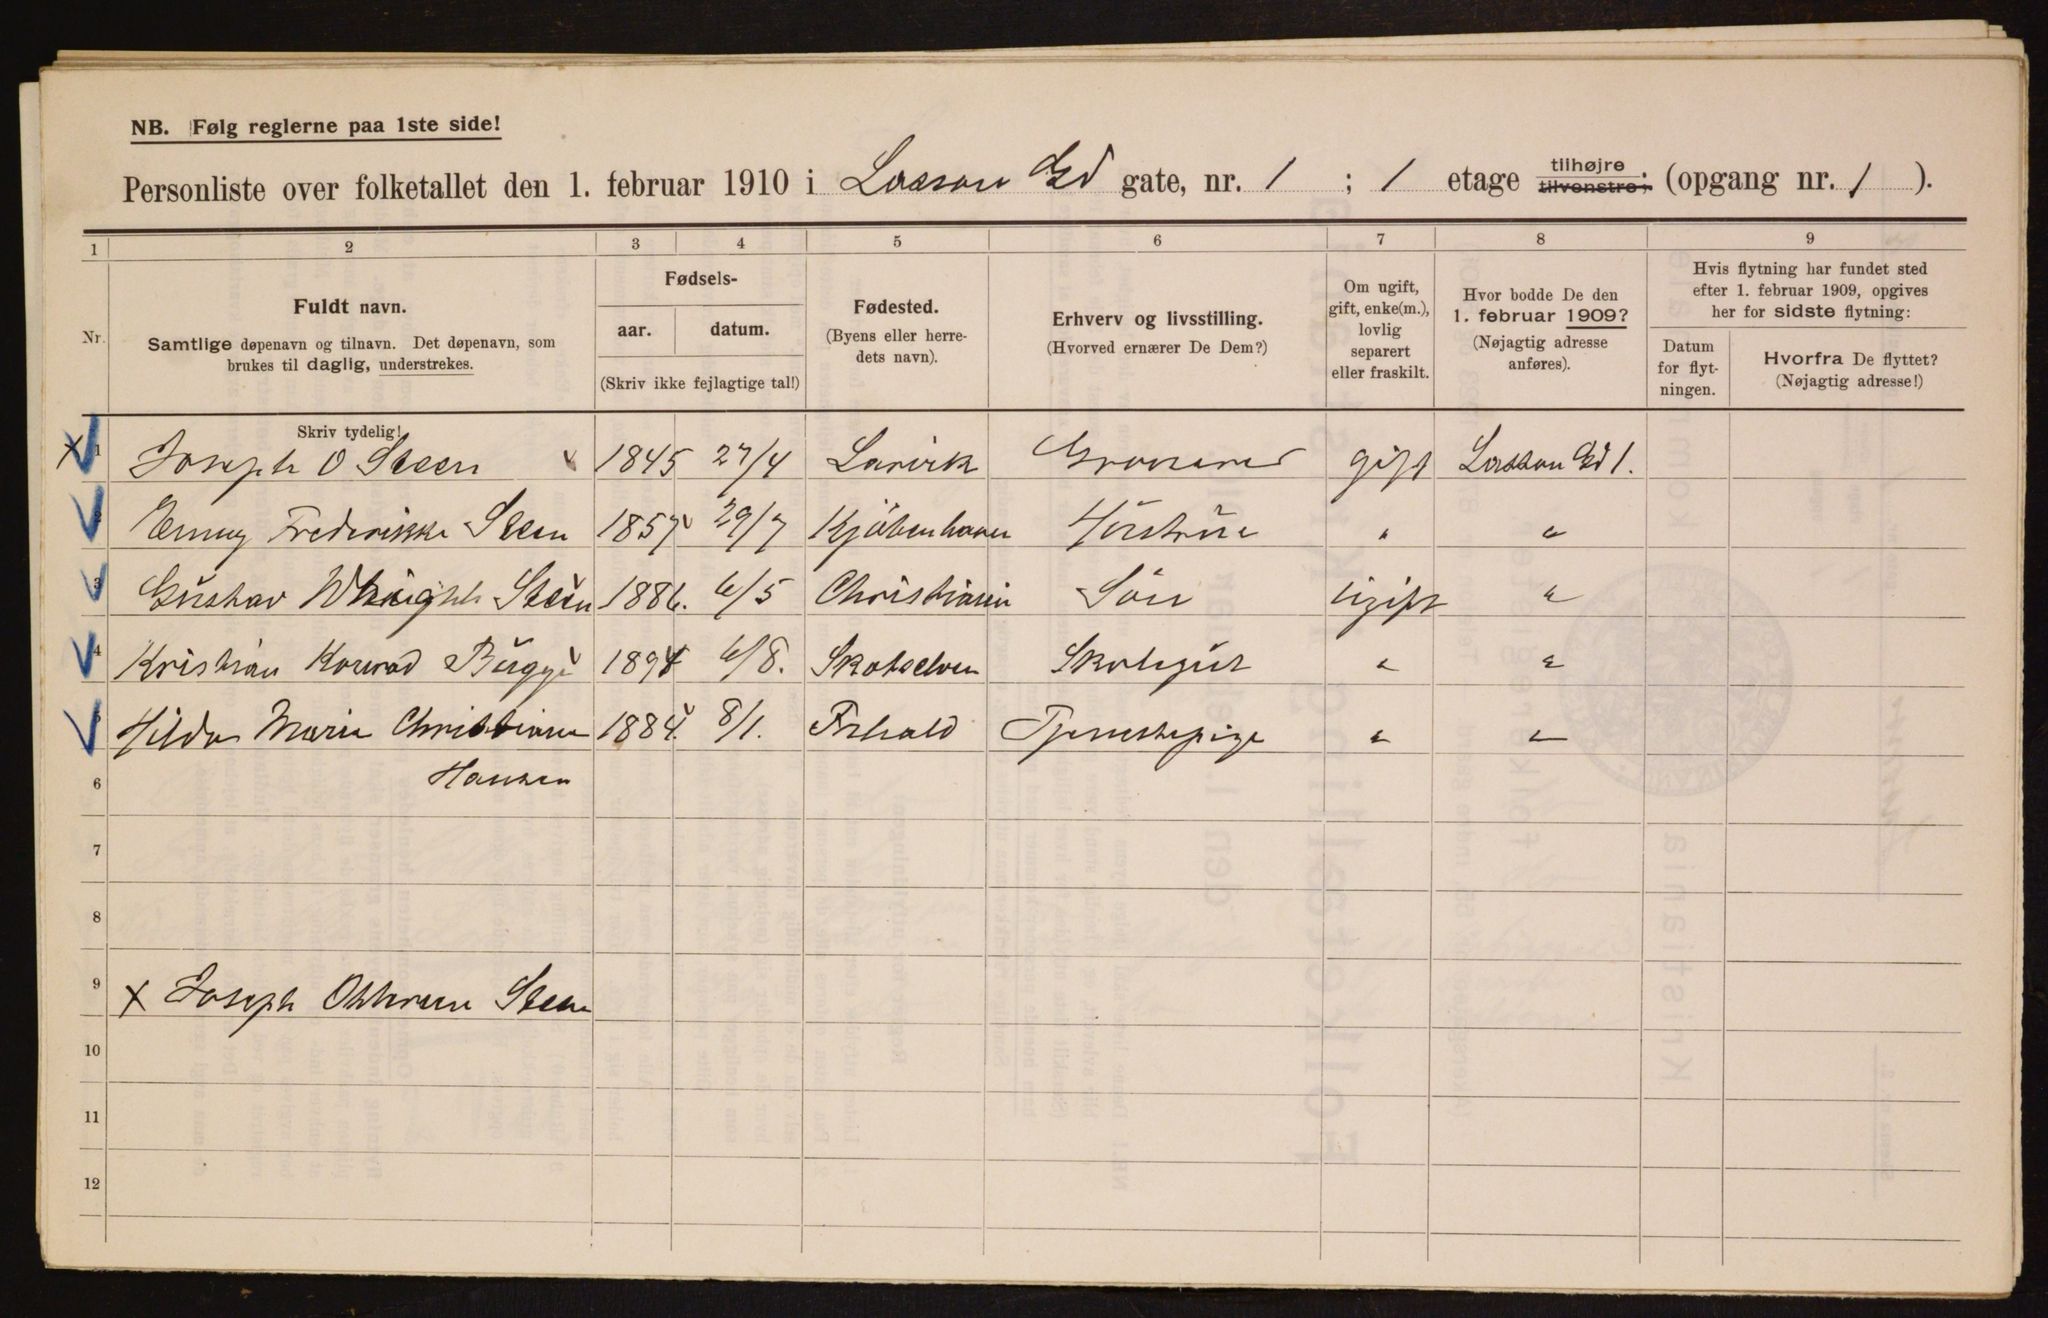 NB. Følg reglerne paa 1ste side!
Personliste over folketallet den 1. februar 1910 i Lasson Gd gate, nr. 1 ; 1 etage tilhøjre tilvenstre; (opgang nr. 1 ).
1 2 3 4 5 6 7 8 9
Nr.
Fuldt navn.
Samtlige døpenavn og tilnavn. Det døpenavn, som
brukes til daglig, understrekes.
Fødsels-
aar. datum.
(Skriv ikke fejlagtige tal!)
Fødested.
(Byens eller herre-
dets navn).
Erhverv og livsstilling.
(Hvorved ernærer De Dem?)
Om ugift,
gift, enke(m.),
lovlig
separert
eller fraskilt.
Hvor bodde De den
1. februar 1909?
(Nøjagtig adresse
anføres).
Hvis flytning har fundet sted
efter 1. februar 1909, opgives
her for sidste flytning:
Datum
for flyt-
ningen.
Hvorfra De flyttet?
(Nøjagtig adresse!)
Skriv tydelig!
x 1 Joseph O Steen 1845 27/4 Larvik gift Lasson Gd 1.
2 Emmy Frederikke Steen 1857 29/7 Kjöbenhavn Hüstrü " "
3 Gustav Steen 1886. 6/5 Christiania Sön ügift "
4 Kristian Konrad Bügge 1894 6/8. Skotselven Skolegüt " "
5 Hilda Marie Christiane 1884. 8/1. Tjenestepige " "
Hansen
6
7
8
9 x Joseph Steen
10
11
12